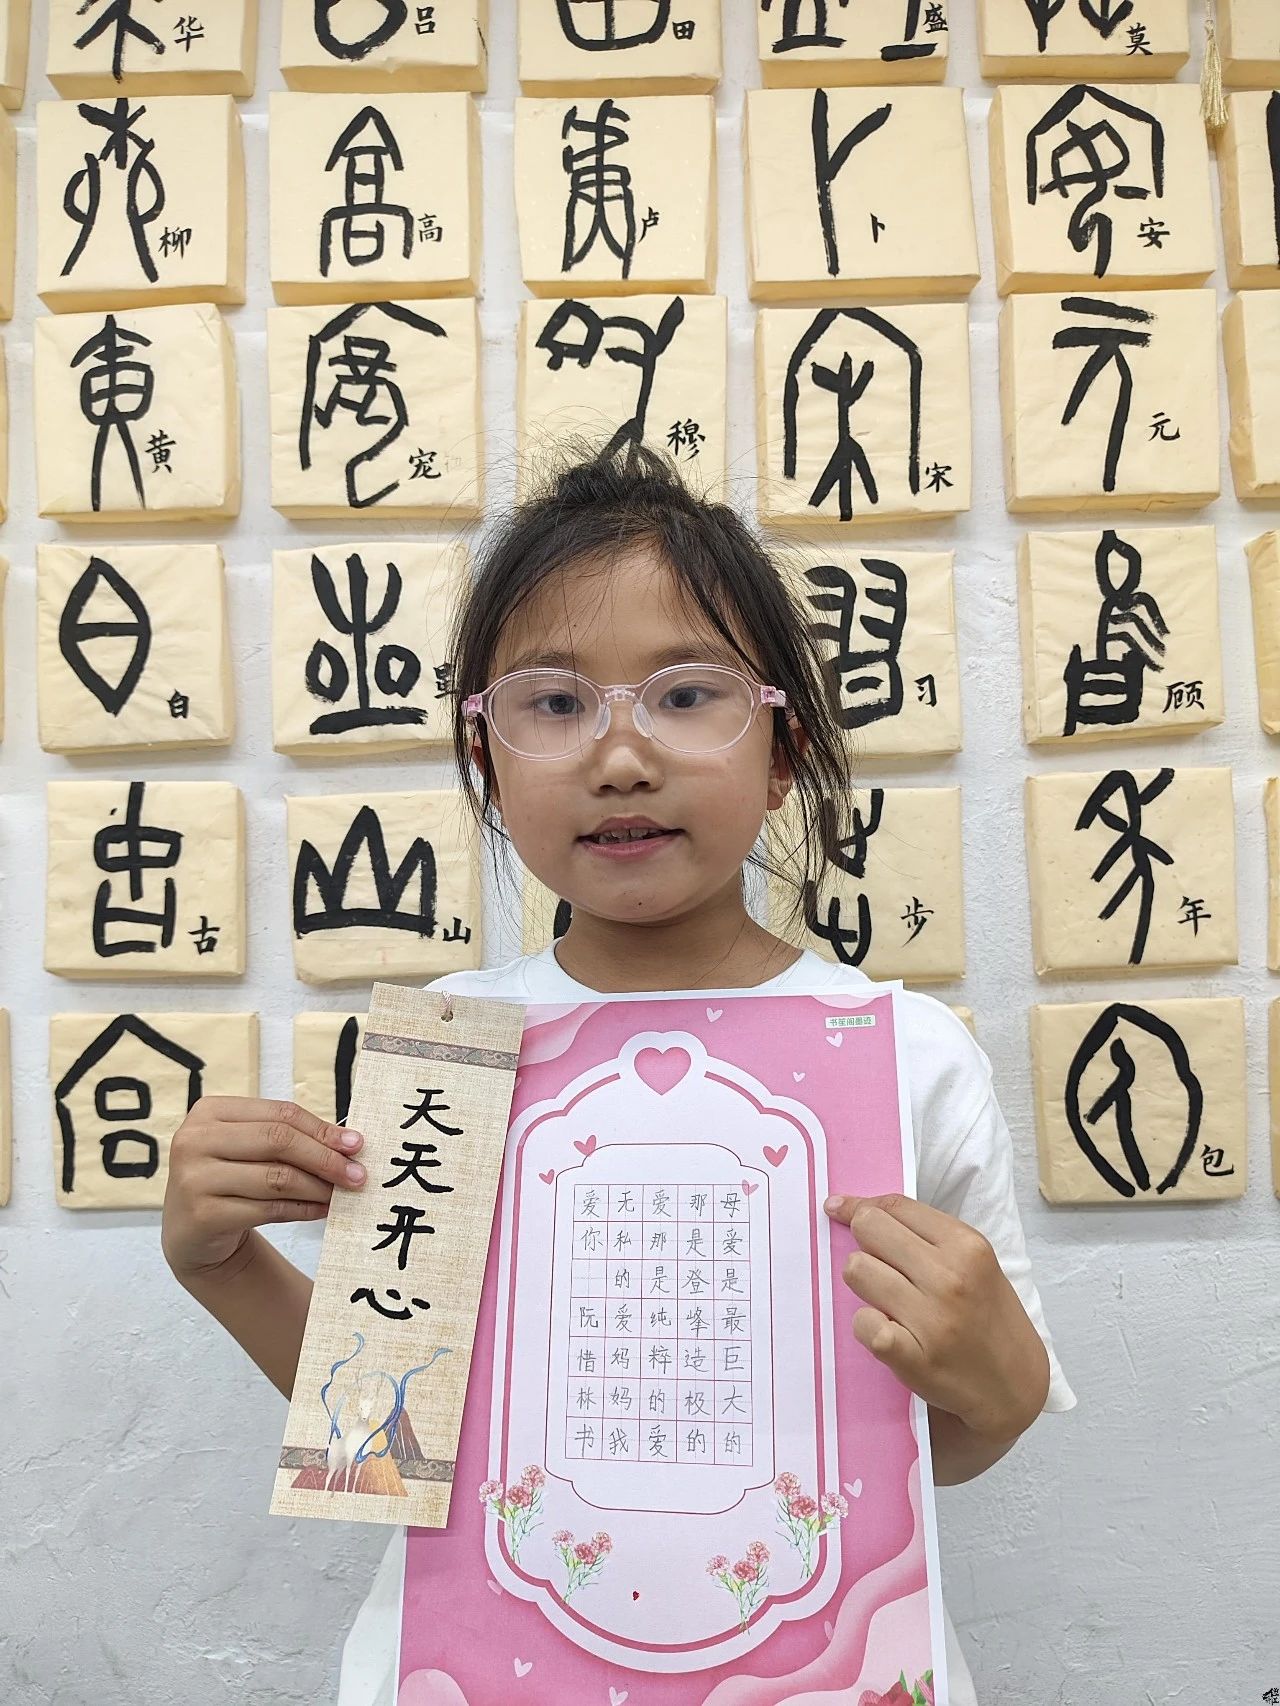 华 吕 田 盛 莫
柳 高 卢 卜 安
黄 宠 穆 宋 元
白 习 顾
古 山 步 年
包
天天开心
书笙阁墨迹
母爱是最巨大的
那是登峰造极的
爱那是纯粹的爱
无私的爱妈妈我
爱你 阮惜林书